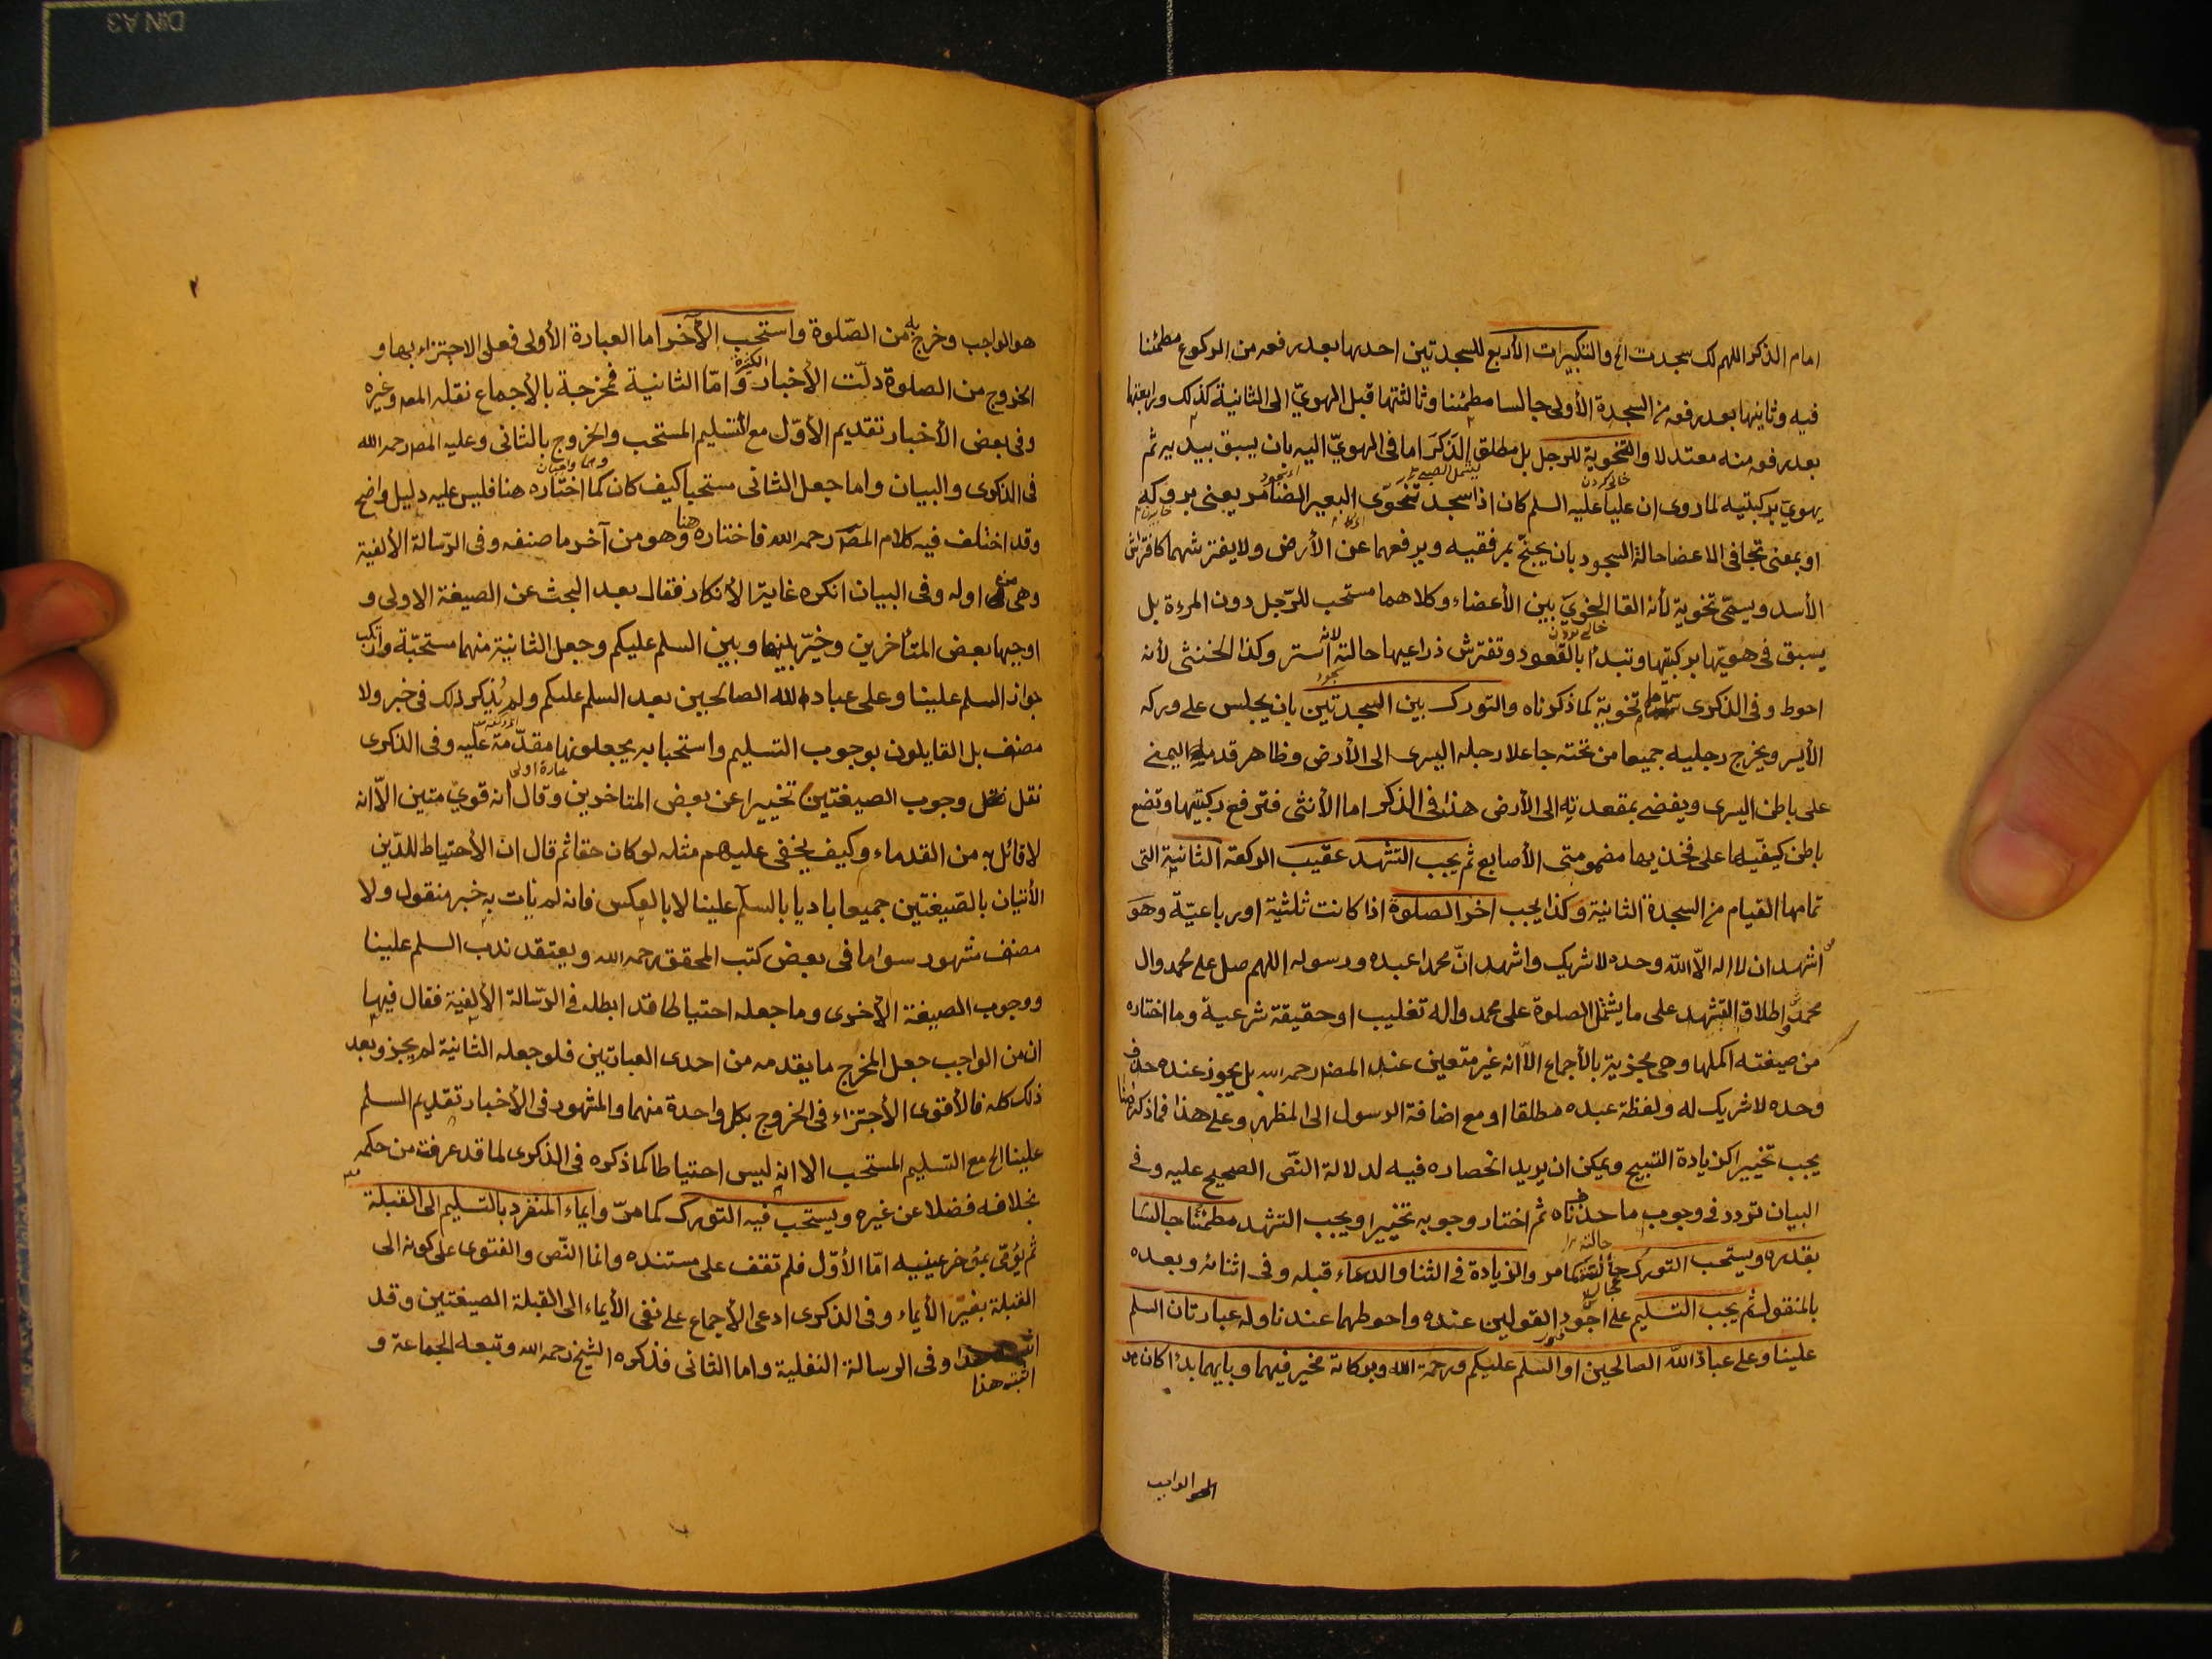 امام الذكر اللهم لك سجدت الخ والتكبيرات الأربع للسجدتين احدیها بعد رفعه من الركوع مطمئنا
فيه وثانيها بعد رفعه من السجدة الأولى جالسا مطمئنا وثالثتها قبل الهويّ الى الثانية كذلك ورابعتها
بعد رفعه منه معتدلا والتخوية للرجل بل مطلق الذكر اما فى الهويّ اليه بان يسبق بيديه ثم
يهويّ بركبتيه لما روى ان عليا عليه السلم كان اذا سجد تخوّى البعير الضامر يعنى بروكه
او بمعنى تجافى الاعضا حالة السجود بان يجنّح بمرفقيه ويرفعهما عن الأرض ولا يفترشهما كافتراش
الأسد ويسمّى تخوية لأنه القا الخويّ بين الأعضاء وكلاهما مستحب للرّجل دون المرءة بل
يسبق فى هويّها بركبتيها وتبدأ بالقعود وتفترش ذراعيها حالته لانه استر وكذا الخنثى لأنه
احوط وفى الذكرى تخوية كما ذكرناه والتورك بين السجدتين بان يجلس على وركه
الأيسر ويخرج رجليه جميعا من تحته جاعلا رجله اليسرى الى الأرض وظاهر قدمه اليمنى
على باطن اليسرى ويفضى بمقعدته الى الأرض هذا فى الذكر اما الأنثى فترفع ركبتيها وتضع
باطن كفيها على فخذيها مضمومتى الأصابع ثم يجب التشهد عقيب الركعة الثانية التى
تمامها القيام من السجدة الثانية وكذا يجب اخر الصلوة اذا كانت ثلثية اورباعيّة وهو
اشهد ان لا اله الّا الله وحده لا شريك واشهد انّ محمدا عبده ورسوله اللهم صل على محمد وال
محمد واطلاق التشهد على ما يشمل الصلوة على محمد واله تغليب او حقيقة شرعية وما اختاره
من صيغته اكملها وهى مجزية بالأجماع الّا انه غير متعين عند المص رحمه الله بل يجوز عنده حذف
وحده لا شريك له ولفظة عبده مطلقا او مع اضافة الرسول الى المظهر وعلى هذا فما ذكر هنا
يجب تخييرا كزيادة التسبيح ويمكن ان يريد انحصاره فيه لدلالة النّص الصحيح عليه وفى
البيان تردد فى وجوب ما حذفناه ثم اختار وجوبه تخييرا ويجب التشهد مطمئنا جالسا
بقدره ويستحب التورك حالته كما مر والزيادة فى الثنا والدعاء قبله وفى اثنائه وبعده
بالمنقول ثم يجب التسليم على اجود القولين عنده واحوطهما عندنا وله عبارتان السلم
علينا وعلى عباد الله الصالحين او السلم عليكم ورحمة الله وبركاته مخير فيهما وبايهما بدأ كان
هو الواجب
هو الواجب وخرج به من الصّلوة واستحب الأخر اما العبارة الأولى فعلى الاجتزاء بها و
الخروج من الصلوة دلّت الأخبار الكثيرة وامّا الثانية فمخرجة بالأجماع نقله المص وغيره
وفى بعض الأخبار تقديم الأوّل مع التسليم المستحب والخروج بالثانى وعليه المص رحمه الله
فى الذكرى والبيان واما جعل الثانى مستحبا كيف كان كما اختاره هنا فليس عليه دليل واضح
وقد اختلف فيه كلام المص رحمه الله فاختاره هنا وهو من آخر ما صنفه وفى الرّسالة الألفية
وهى من اوله وفى البيان انكره غاية الأنكار فقال بعد البحث عن الصيغة الاولى و
اوجبها بعض المتأخرين وخيّر بينها وبين السلم عليكم وجعل الثانية منهما مستحبّة وارتكب
جواز السلم علينا وعلى عباد الله الصالحين بعد السلم عليكم ولم يُذكر ذلك فى خبر ولا
مصنف بل القايلون بوجوب التسليم واستحبابه يجعلونها مقدّمة عليه وفى الذكرى
نقل وجوب الصيغتين تخييرا عن بعض المتاخرين وقال انه قويّ متين الّا انه
لا قائل به من القدماء وكيف يخفى عليهم مثله لو كان حقا ثم قال انّ الأحتياط للدّين
الأتيان بالصّيغتين جميعا باديا بالسلم علينا لا بالعكس فانه لم يات به خبر منقول ولا
مصنف مشهور سوا ما فى بعض كتب المحقق رحمه الله ويعتقد ندب السلم علينا
ووجوب الصيغة الأخرى وما جعله احتياطا قد ابطله فى الرّسالة الألفية فقال فيها
ان من الواجب جعل المخرج ما يقدمه من احدى العبارتين فلو جعله الثانية لم يجز وبعد
ذلك كله فالأقوى الأجتزاء فى الخروج بكل واحدة منهما والمشهور فى الأخبار تقديم السلم
علينا الخ مع التسليم المستحب الا انه ليس احتياطا كما ذكره فى الذكرى لما قد عرفت من حكمه
بخلافه فضلا عن غيره ويستحب فيه التورك كما مرّ وايماء المنفرد بالتسليم الى القبلة
ثم يؤمى بمؤخر عينيه امّا الأوّل فلم تقف على مستنده وانما النّص والفتوى على كونه الى
القبلة بغير الأيماء وفى الذكرى ادعى الأجماع على نفى الأيماء الى القبلة الصيغتين وقد
اثبته هنا وفى الرسالة النفلية واما الثانى فذكره الشيخ رحمه الله وتبعه الجماعة و